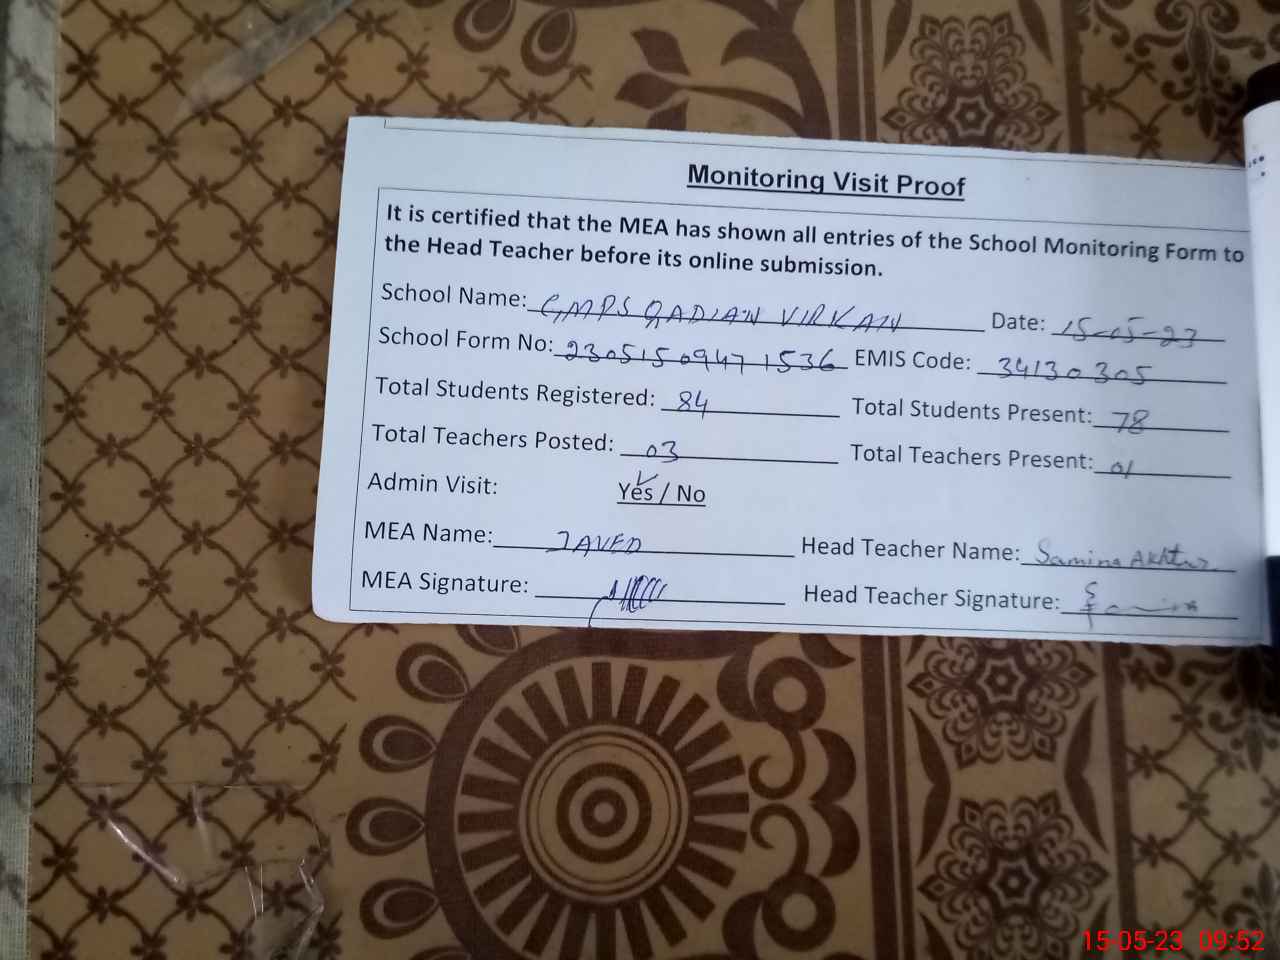 Monitoring Visit Proof
It is certified that the MEA has shown all entries of the School Monitoring Form to
the Head Teacher before its online submission.
School Name: GMPS QADIAN VIRKAN Date: 15-05-23
School Form No: 2305150947 1536 EMIS Code: 34130305
Total Students Registered: 84 Total Students Present: 78
Total Teachers Posted: 03 Total Teachers Present: 01
Admin Visit: Yes / No
MEA Name: JAVED Head Teacher Name: Samina Akhtar
MEA Signature: Head Teacher Signature:
15-05-23 09:52